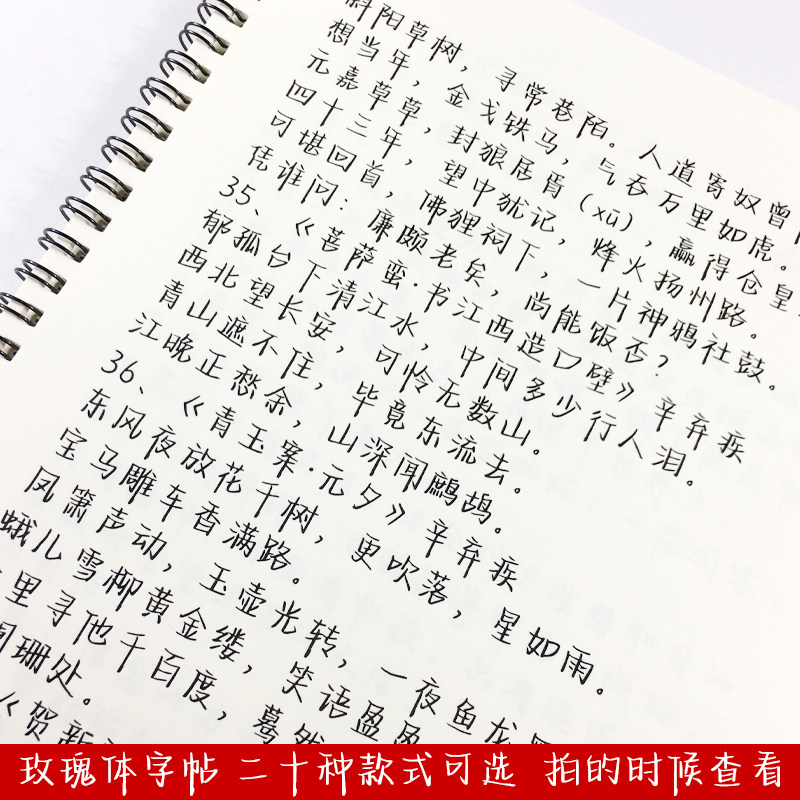 斜阳草树，寻常巷陌。人道寄奴曾
想当年，金戈铁马，气吞万里如虎。
元嘉草草，封狼居胥（xū），赢得仓皇
四十三年，望中犹记，烽火扬州路。
可堪回首，佛狸祠下，一片神鸦社鼓。
凭谁问：廉颇老矣，尚能饭否？
35、《菩萨蛮·书江西造口壁》辛弃疾
郁孤台下清江水，中间多少行人泪。
西北望长安，可怜无数山。
青山遮不住，毕竟东流去。
江晚正愁余，山深闻鹧鸪。
36、《青玉案·元夕》辛弃疾
东风夜放花千树，更吹落，星如雨。
宝马雕车香满路。
凤箫声动，玉壶光转，一夜鱼龙
蛾儿雪柳黄金缕，笑语盈盈
里寻他千百度，蓦然
珊处。
《贺新
玫瑰体字帖 二十种款式可选 拍的时候查看